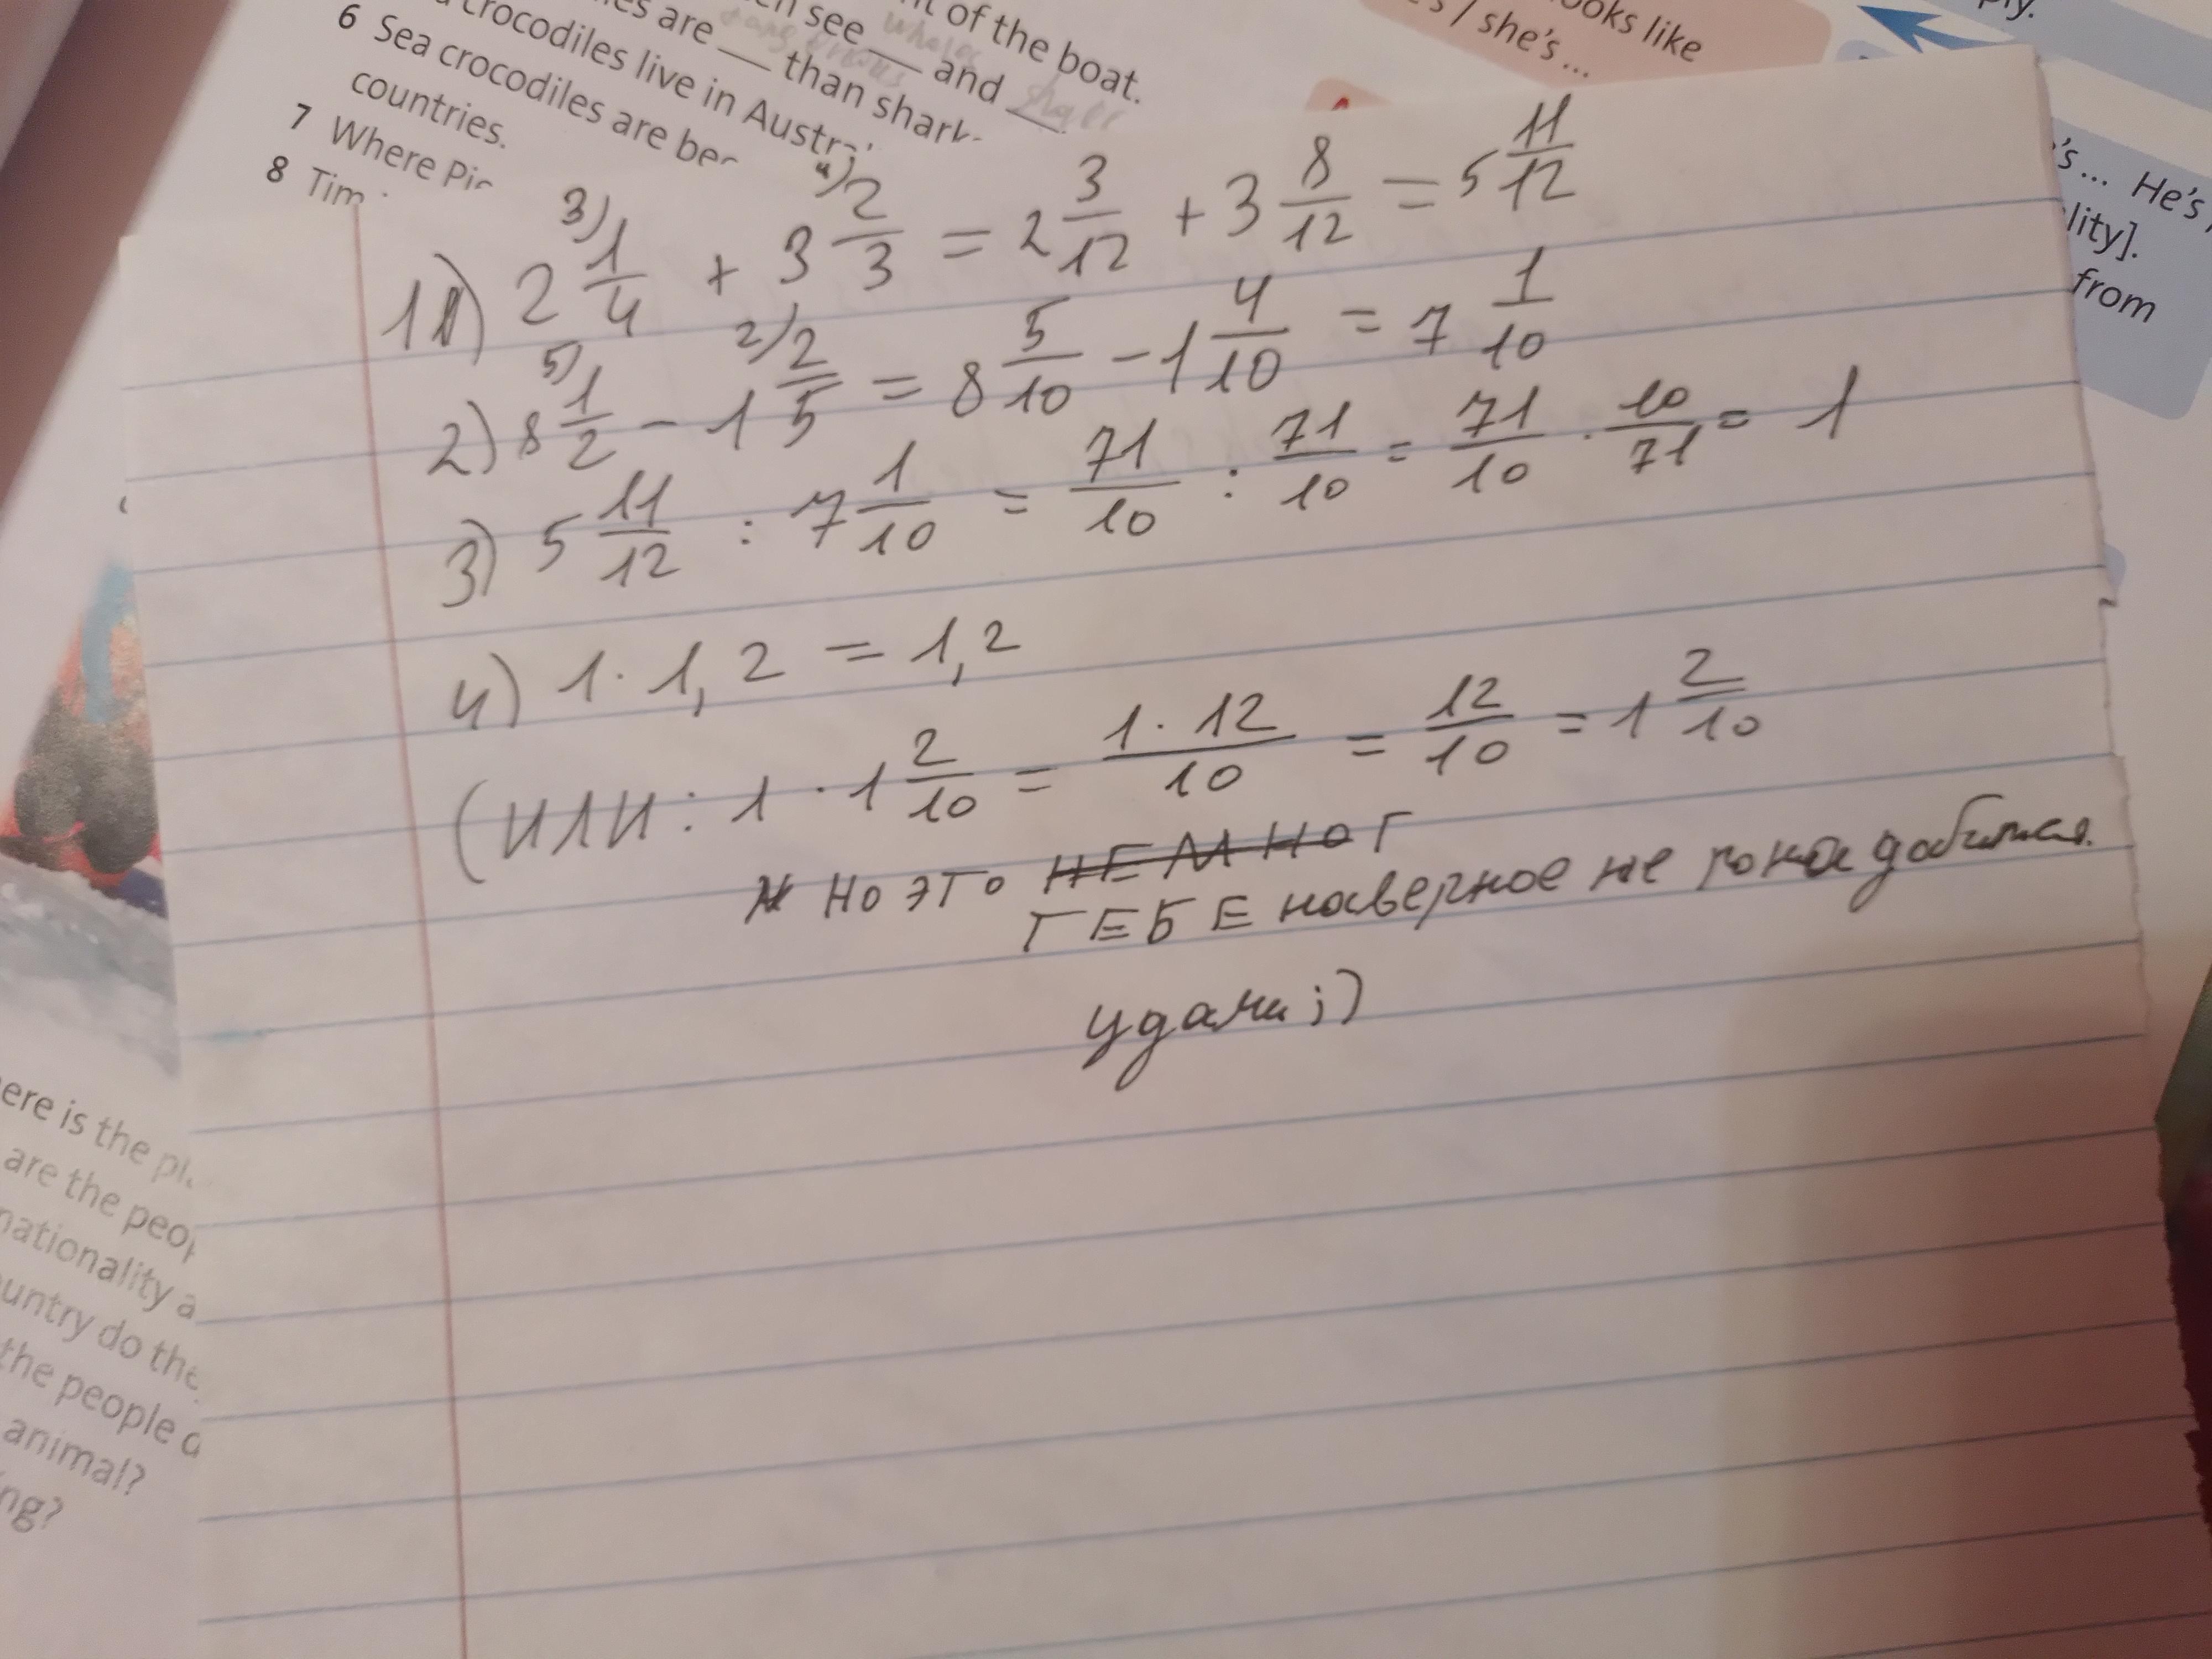 of the boat.
see ___ and ___
es are ___ than shark
crocodiles live in Austra
6 Sea crocodiles are be
countries.
7 Where Pi
8 Tim
ooks like
s / she's ...
ply.
's ... He's
lity].
from
1) 2 3)1/4 + 3 4)2/3 = 2 3/12 + 3 8/12 = 5 11/12
2) 8 5)1/2 - 1 2)2/5 = 8 5/10 - 1 4/10 = 7 1/10
3) 5 11/12 : 7 1/10 = 71/10 : 71/10 = 71/10 · 10/71 = 1
4) 1 · 1,2 = 1,2
(ИЛИ: 1 · 1 2/10 = 1 · 12/10 = 12/10 = 1 2/10
НО ЭТО НЕМНОГ
ТЕБЕ наверное не понадобится.
удачи ;)
ere is the pl
are the peop
nationality a
untry do the
the people
animal?
ng?